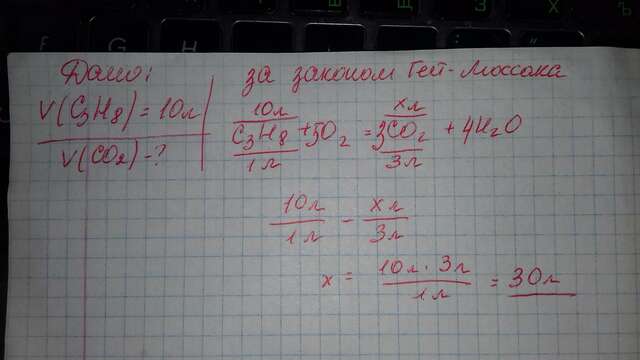 Дано:
V(C3H8) = 10л
V(CO2) - ?
за законом Гей-Люссака
10л xл
C3H8 + 5O2 = 3CO2 + 4H2O
1л 3л
10л/1л - xл/3л
x = 10л · 3л/1л = 30л